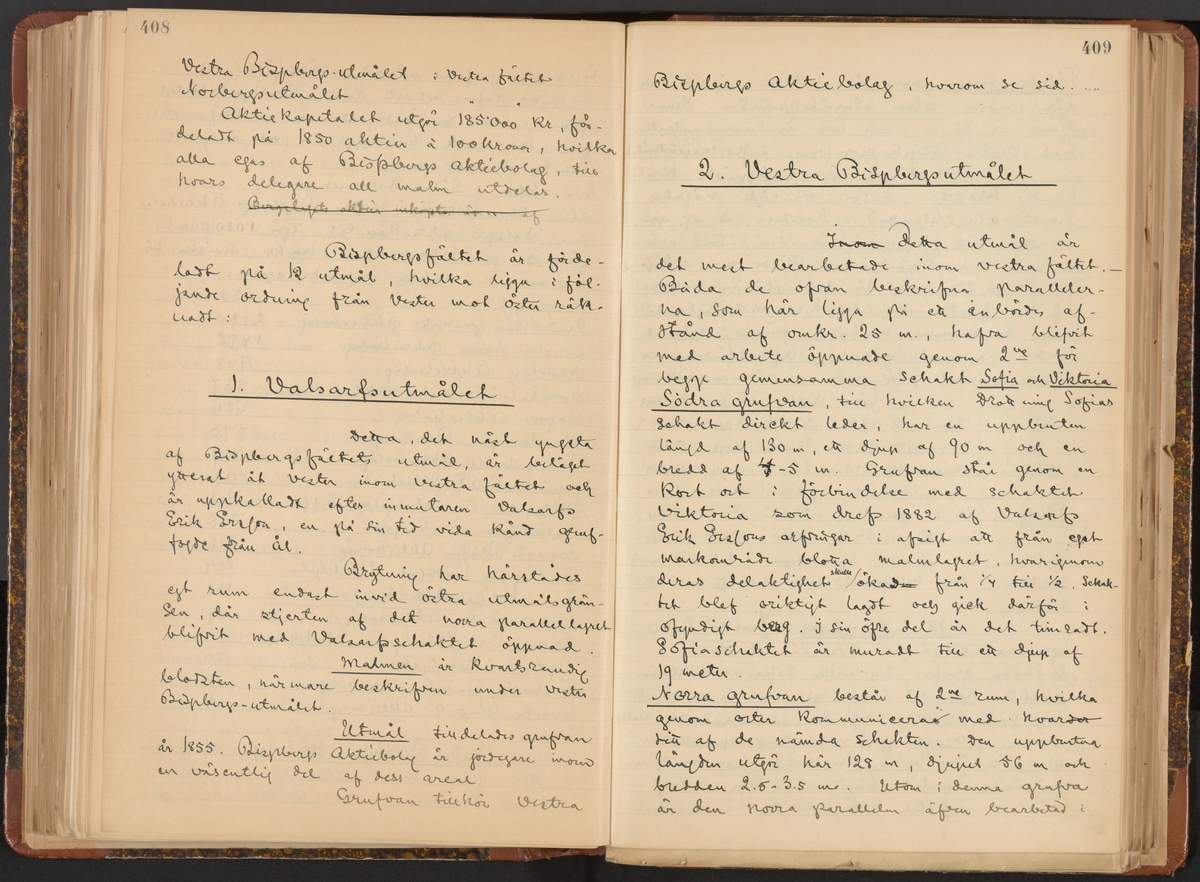 408
Vestra Bispbergs-utmålet i vestra fältet
Norbergsutmålet
Aktiekapitalet utgör 185'000 kr, för-
deladt på 1850 aktier à 100 kronor, hvilka
alla egas af Bispbergs Aktiebolag, till
hvars delegare all malm utdelas.
aktier inköpta af
Bispbergsfältet är förde-
ladt på 12 utmål, hvilka ligga i föl-
jande ordning från vester mot öster räk-
nadt:
1. Valsarfsutmålet
Detta, det näst yngsta
af Bispbergsfältets utmål, är beläget
ytterst åt vester inom vestra fältet och
är uppkalladt efter inmutaren Valsarfs
Erik Ersson, en på sin tid vida känd gruf-
fogde från ål.
Brytning har härstädes
egt rum endast invid östra utmålsgrän-
sen, där stjerten af det norra parallellagret
blifvit med Valsarfsschaktet öppnad.
Malmen är kvartsrandig
blodsten, närmare beskrifven under vestra
Bispbergs-utmålet.
Utmål tilldelades grufvan
år 1855. Bispbergs Aktiebolag är jordegare inom
en väsentlig del af dess areal
Grufvan tillhör Vestra
409
Bispbergs Aktiebolag, hvarom se sid. ....
2. Vestra Bispbergsutmålet
Inom Detta utmål är
det mest bearbetade inom vestra fältet.—
Båda de ofvan beskrifna paralleler-
na, som här ligga på ett inbördes af-
stånd af omkr. 25 m., hafva blifvit
med arbete öppnade genom 2ne för
begge gemensamma schakt Sofia och Viktoria
Södra grufvan, till hvilken Drottning Sofias
schakt direkt leder, har en uppbruten
längd af 130 m, ett djup af 90 m och en
bredd af 4-5 m. Grufvan står genom en
kort ort i förbindelse med schaktet
Viktoria som drefs 1882 af Valsarfs
Erik Erssons arfvingar i afsigt att från eget
markområde blotta malmlagret, hvarigenom
deras delaktighet skulle ökadn från 1/4 till 1/2. Schak-
tet blef oriktigt lagdt och gick därför i
ofyndigt berg. I sin öfre del är det timradt.
Sofiaschaktet är muradt till ett djup af
19 meter.
Norra grufvan består af 2ne rum, hvilka
genom orter kommunicera med hvarder
ditt af de nämda schakten. Den uppbrutna
längden utgör här 128 m, djupet 56 m och
bredden 2.5-3.5 m. Utom i denna grufva
är den norra parallelen äfven bearbetad i